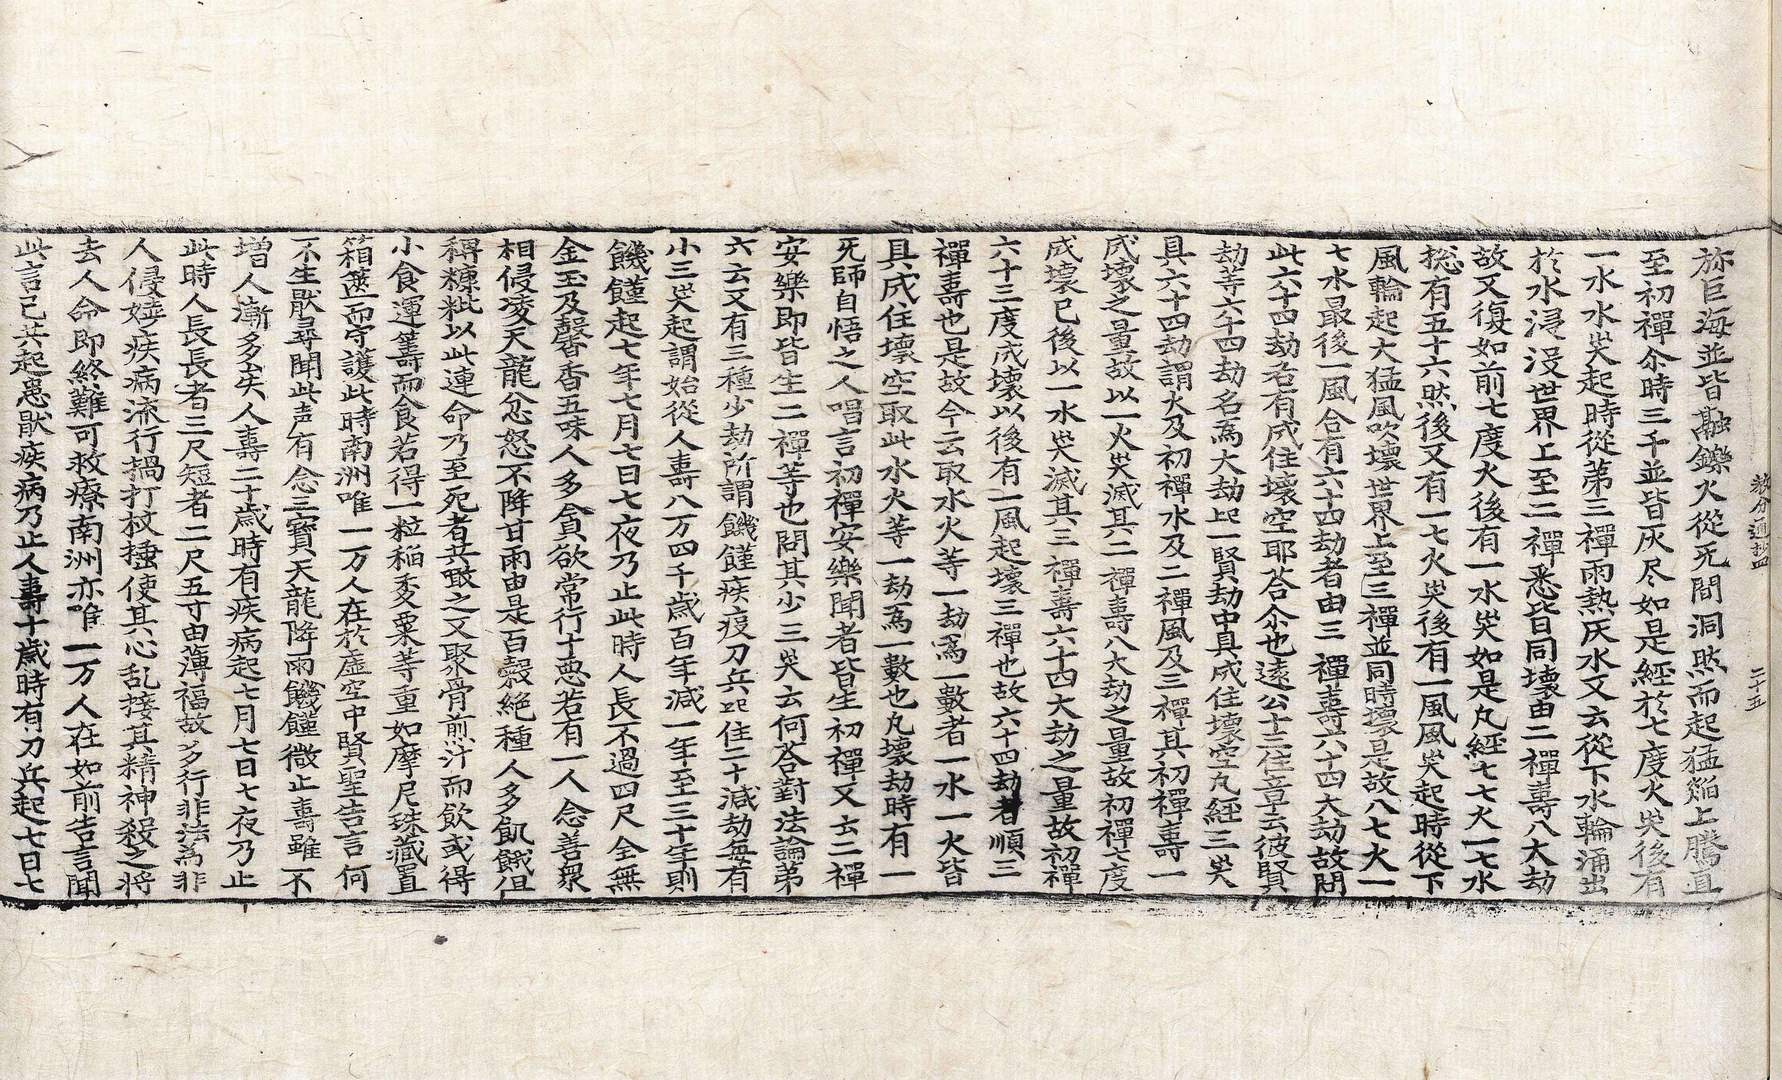 教分通抄四　二十五
弥巨海並皆融鑠火從旡間洞然而起猛焰上騰直
至初禪尒時三千並皆灰尽如是經於七度火灾後有
一水水灾起時從第三禪雨熱灰水又云從下水輪涌出
於水浸沒世界上至二禪悉皆同壞由二禪壽八大劫
故又復如前七度火後有一水灾如是凡經七七火一七水
捴有五十六然後又有一七火灾後有一風風灾起時從下
風輪起大猛風吹壞世界上至三禪並同時壞是故八七火一
七水最後一風合有六十四劫者由三禪壽六十四大劫故問
此六十四劫各有成住壞空耶荅尒也遠公十二住章云彼賢
劫等六十四劫名為大劫㠯一賢劫中具成住壞空凡經三灾
具六十四劫謂火及初禪水及二禪風及三禪其初禪壽一
成壞之量故以一火灾滅其二禪壽八大劫之量故初禪七度
成壞已後以一水灾滅其三禪壽六十四大劫之量故初禪
六十三度成壞以後有一風起壞三禪也故六十四劫者順三
禪壽也是故今云取水火等一劫為一數者一水一火皆
具成住壞空取此水火等一劫為一數也凡壞劫時有一
旡師自悟之人唱言初禪安樂聞者皆生初禪又云二禪
安樂即皆生二禪等也問其少三灾云何荅對法論第
六云又有三種少劫所謂饑饉疾疫刀兵㠯住二十減劫每有
小三灾起謂始從人壽八万四千歲百年減一年至三十年則
饑饉起七年七月七日七夜乃止此時人長不過四尺全無
金玉及馨香五味人多貪欲常行十惡若有一人念善衆
相侵凌天龍忿怒不降甘雨由是百穀絕種人多飢餓但
得糠粃以此連命乃至死者共噉之又聚骨煎汁而飲或得
小食運籌而食若得一粒稲麦粟等重如摩尼珠藏置
箱篋而守護此時南洲唯一万人在於虛空中賢聖告言何
不生猒尋聞此声有念三寶天龍降雨饑饉微止壽雖不
增人漸多矣人壽二十歲時有疾病起七月七日七夜乃止
此時人長長者三尺短者二尺五寸由薄福故多行非法為非
人侵嬈疾病流行撾打杖捶使其心乱接其精神殺之將
去人命即終難可救療南洲亦唯一万人在如前告言聞
此言已共起患猒疾病乃止人壽十歲時有刀兵起七日七